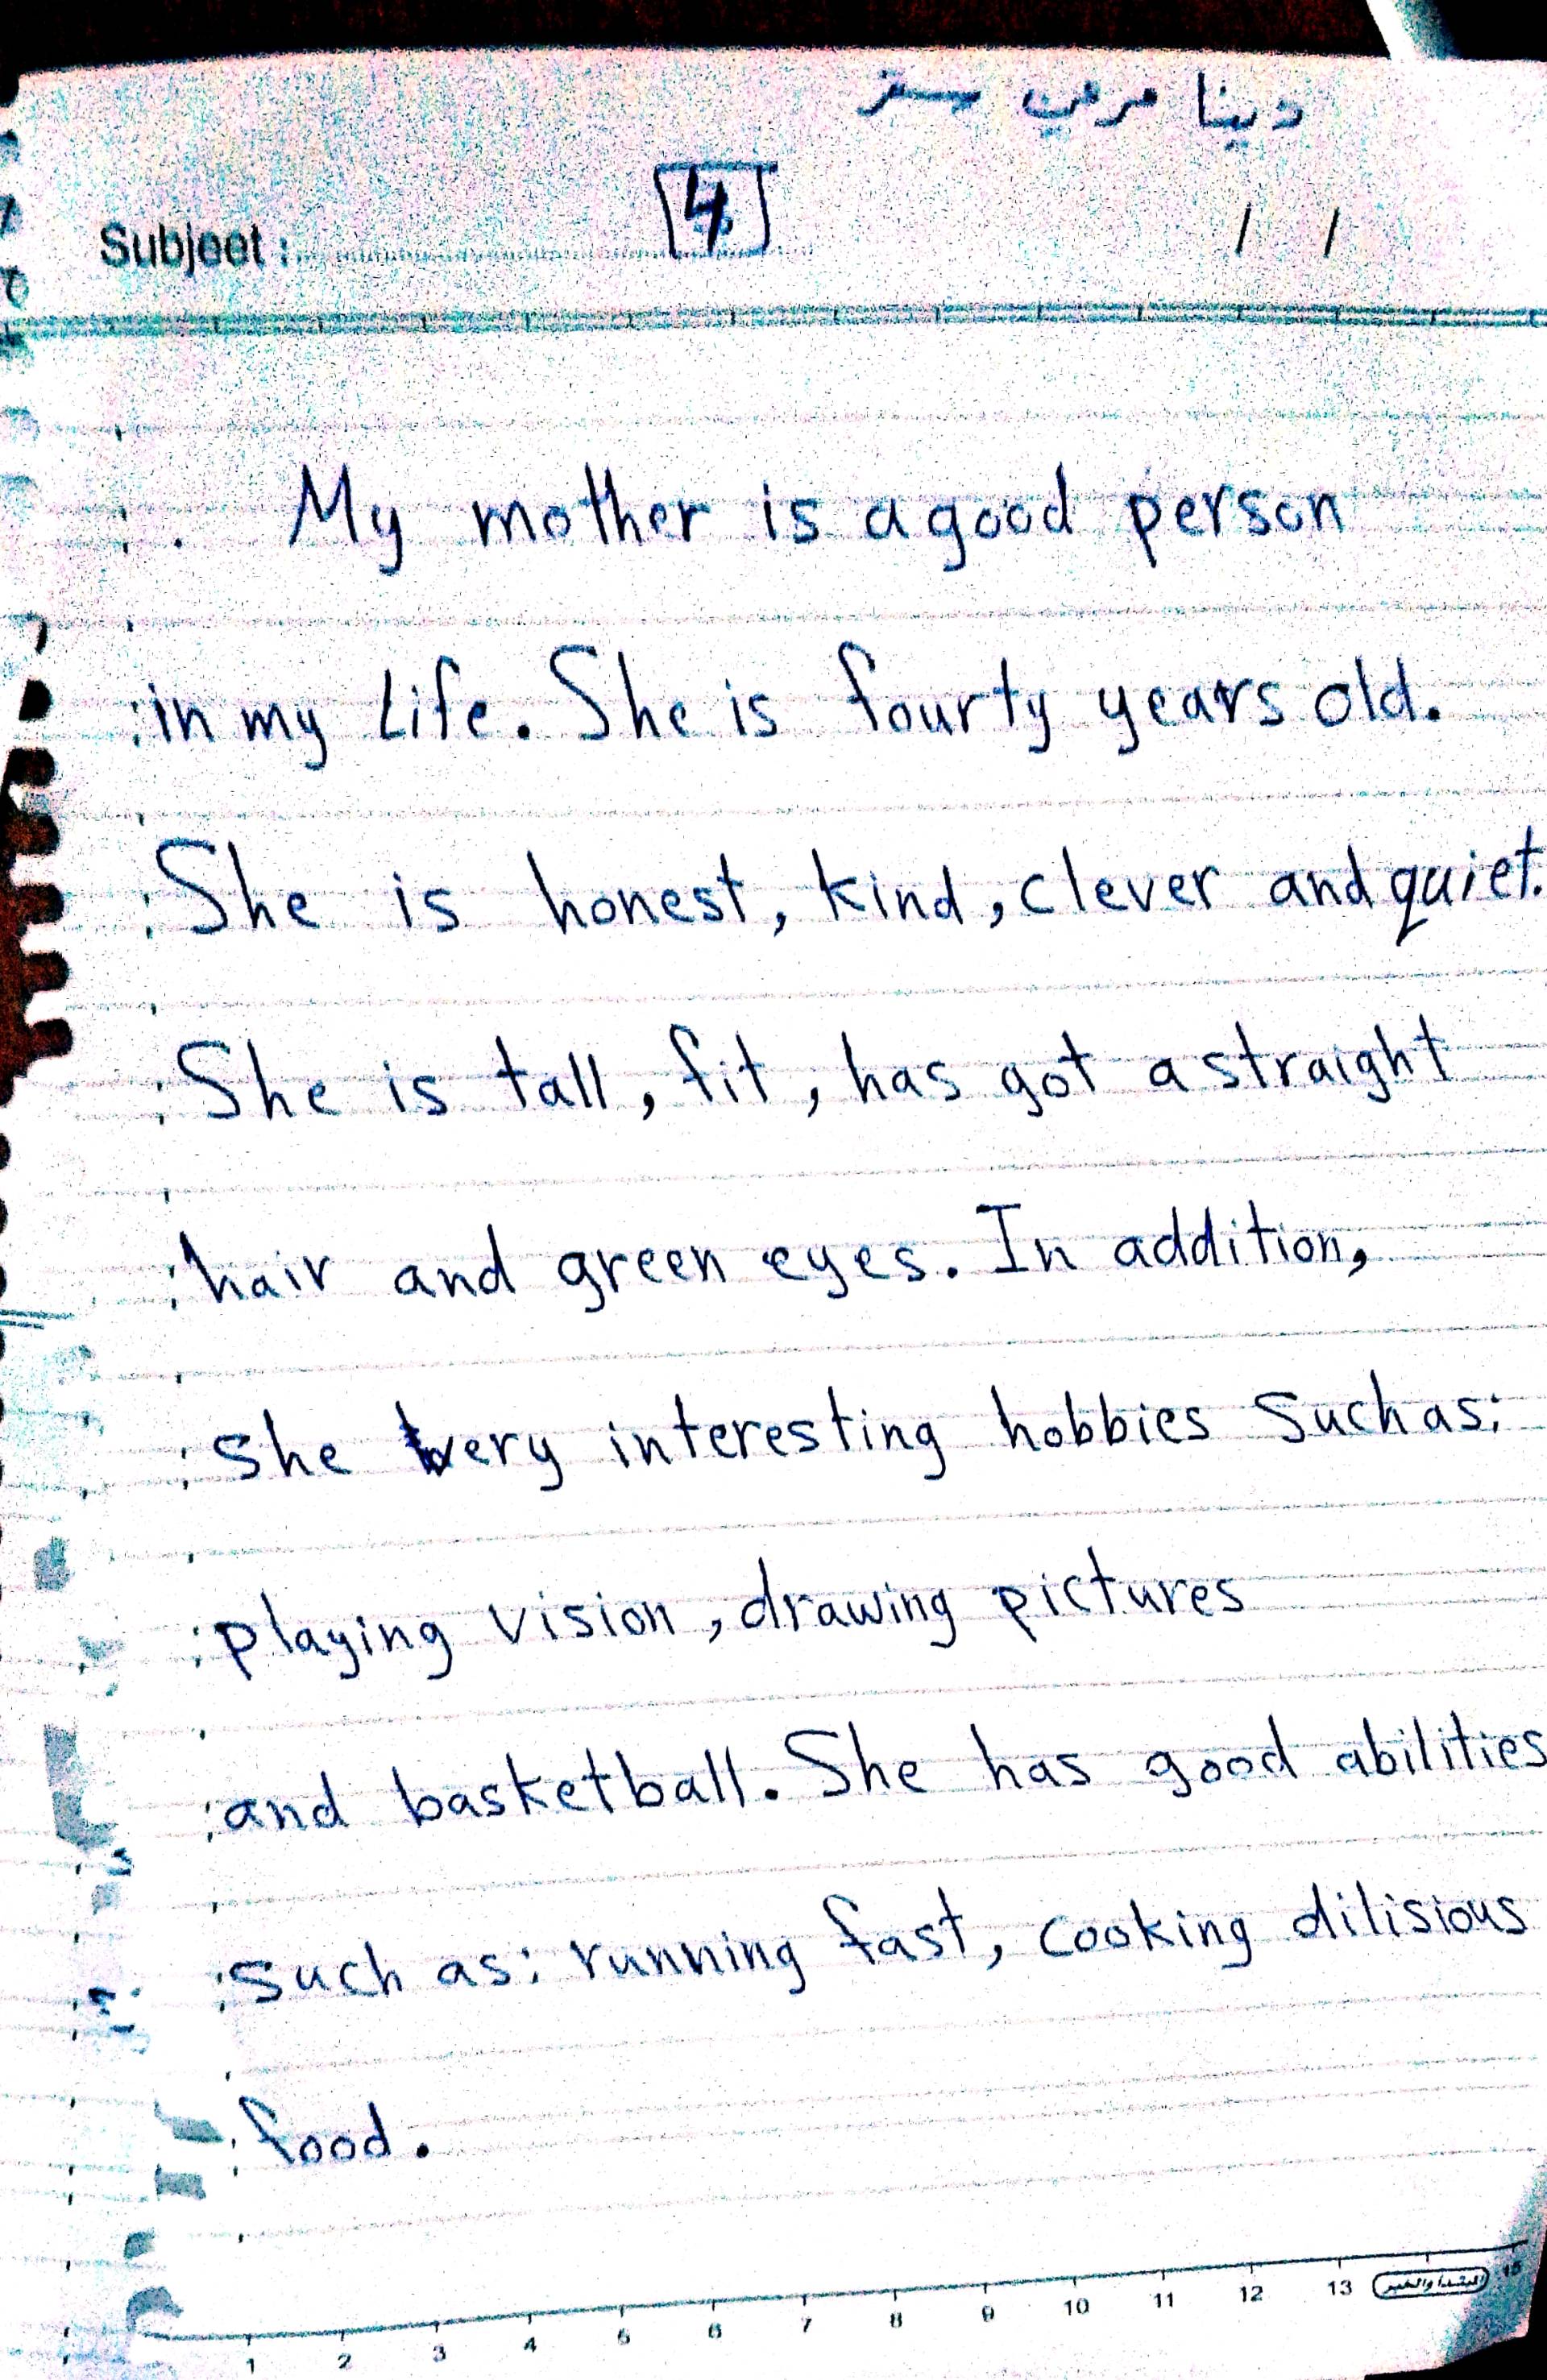 دينا مرعي
4
Subject :
/ /
My mother is a good person
in my life. She is fourty years old.
She is honest, kind, clever and quiet.
She is tall, fit, has got a straight
hair and green eyes. In addition,
she very interesting hobbies such as:
playing vision, drawing pictures
and basketball. She has good abilities
such as: running fast, cooking dilisious
food.
1 2 3 4 5 6 7 8 9 10 11 12 13 15